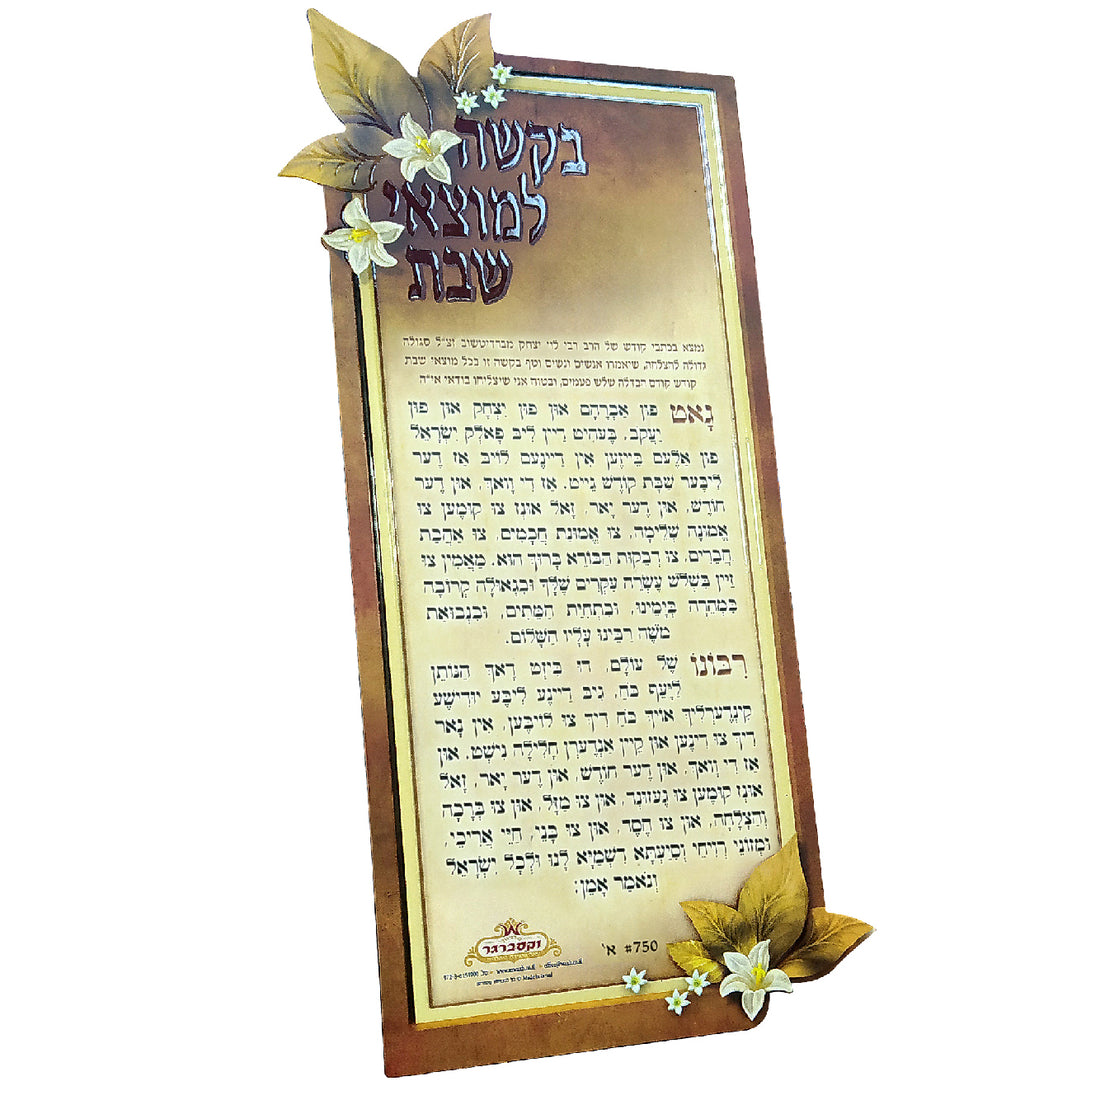 בקשה
למוצאי
שבת
נמצא בכתבי קודש של הרב רבי לוי יצחק מברדיטשוב זצ"ל סגולה
גדולה להצלחה, שיאמרו אנשים ונשים וטף בקשה זו בכל מוצאי שבת
קודש קודם הבדלה שלש פעמים, ובטוח אני שיצליחו בודאי אי"ה
גָאט פון אַבְרָהָם און פון יִצְחָק און פון
יַעֲקֹב, בַּעהִיט דַיין לִיבּ פָאלְק יִשְׂרָאֵל
פון אַלֶעם בֵּייזֶען אִין דַיינֶעם לוֹיבּ אַז דֶער
לִיבֶּער שַׁבָּת קוֹדֶשׁ גֵייט. אַז דִי וָואךְ, און דֶער
חוֹדֶשׁ, און דֶער יָאר, זָאל אונְז צו קומֶען צו
אֱמוּנָה שְׁלֵימָה, צו אֱמוּנַת חֲכָמִים, צו אַהֲבַת
חֲבֵרִים, צו דְבֵקוּת הַבּוֹרֵא בָּרוּךְ הוּא. מַאֲמִין צו
זַיין בִּשְׁלֹשׁ עֶשְׂרֵה עִקְּרִים שֶׁלָּךְ וּבִגְאוּלָּה קְרוֹבָה
בִּמְהֵרָה בְּיָמֵינוּ, וּבִתְחִיַּת הַמֵּתִים, וּבִנְבוּאַת
מֹשֶׁה רַבֵּינוּ עָלָיו הַשָּׁלוֹם.
רִבּוֹנוֹ שֶׁל עוֹלָם, דוּ בִּיזְט דָאךְ הַנּוֹתֵן
לַיָּעֵף כֹּחַ, גִיבּ דַיינֶע לִיבֶּע יודִישֶׁע
קִינְדֶערְלִיךְ אוֹיךְ כֹּחַ דִיךְ צו לוֹיבֶּען, אִין נָאר
דִיךְ צו דִינֶען און קֵיין אַנְדֶערְן חָלִילָה נִישְׁט. און
אַז דִי וָואךְ, און דֶער חוֹדֶשׁ, און דֶער יָאר, זָאל
אונְז קומֶען צו גֶעזונְד, און צו מַזָּל, און צו בְּרָכָה
וְהַצְלָחָה, און צו חֶסֶד, און צו בָּנֵי, חַיֵּי אֲרִיכֵי,
וּמְזוֹנֵי רְוִיחֵי וְסִיַּעְתָּא דִשְׁמַיָּא לָנוּ וּלְכָל יִשְׂרָאֵל
וְנֹאמַר אָמֵן:
וקסברגר
#750 א'